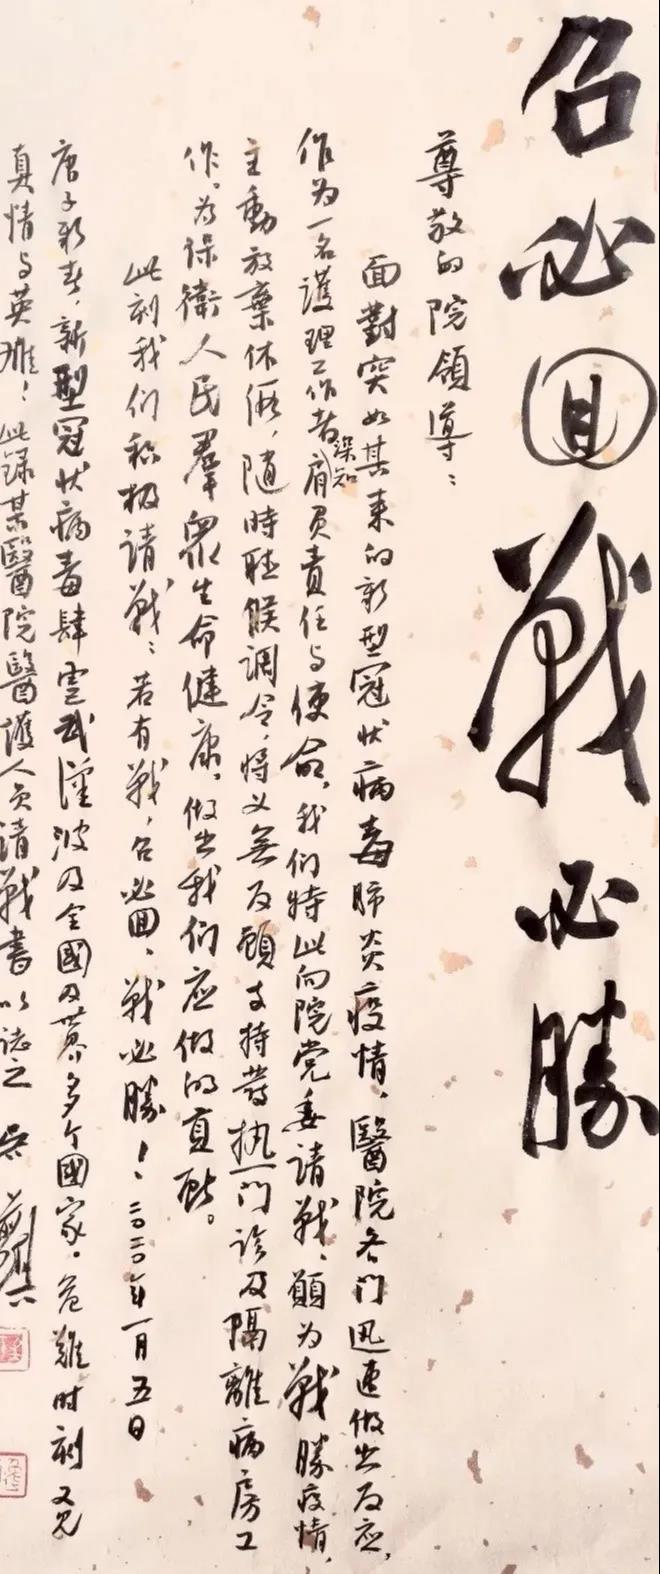 召必回戰必勝
尊敬的院領導：
面對突如其来的新型冠状病毒肺炎疫情，醫院各门迅速做出反應，
作为一名護理工作者深知肩負責任与使命，我们特此向院党委請戰，願为戰勝疫情，
主動放棄休假，隨時聴候調令，將义無反顧支持發热门诊及隔離病房工
作。为保衛人民羣衆生命健康，做出我们应做的貢献。
此刻我们积极請戰：若有戰，召必回，戰必勝！二〇二〇年一月五日
庚子新春，新型冠状病毒肆虐武漢波及全國及世界多个國家。危難时刻又見
真情与英雄！此録某醫院醫護人员请戰書以誌之